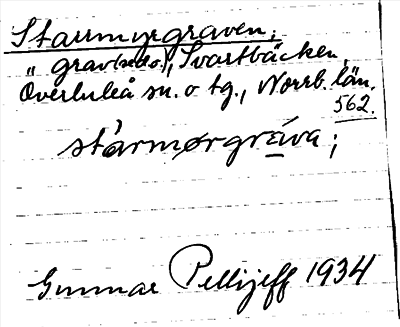 Starrmyrgraven;
" grav (sedo.), Svartbäcken,
Överluleå sn. o tg., Norrb. län.
562.
stármørgrɛ́iva;
Gunnar Pellijeff 1934